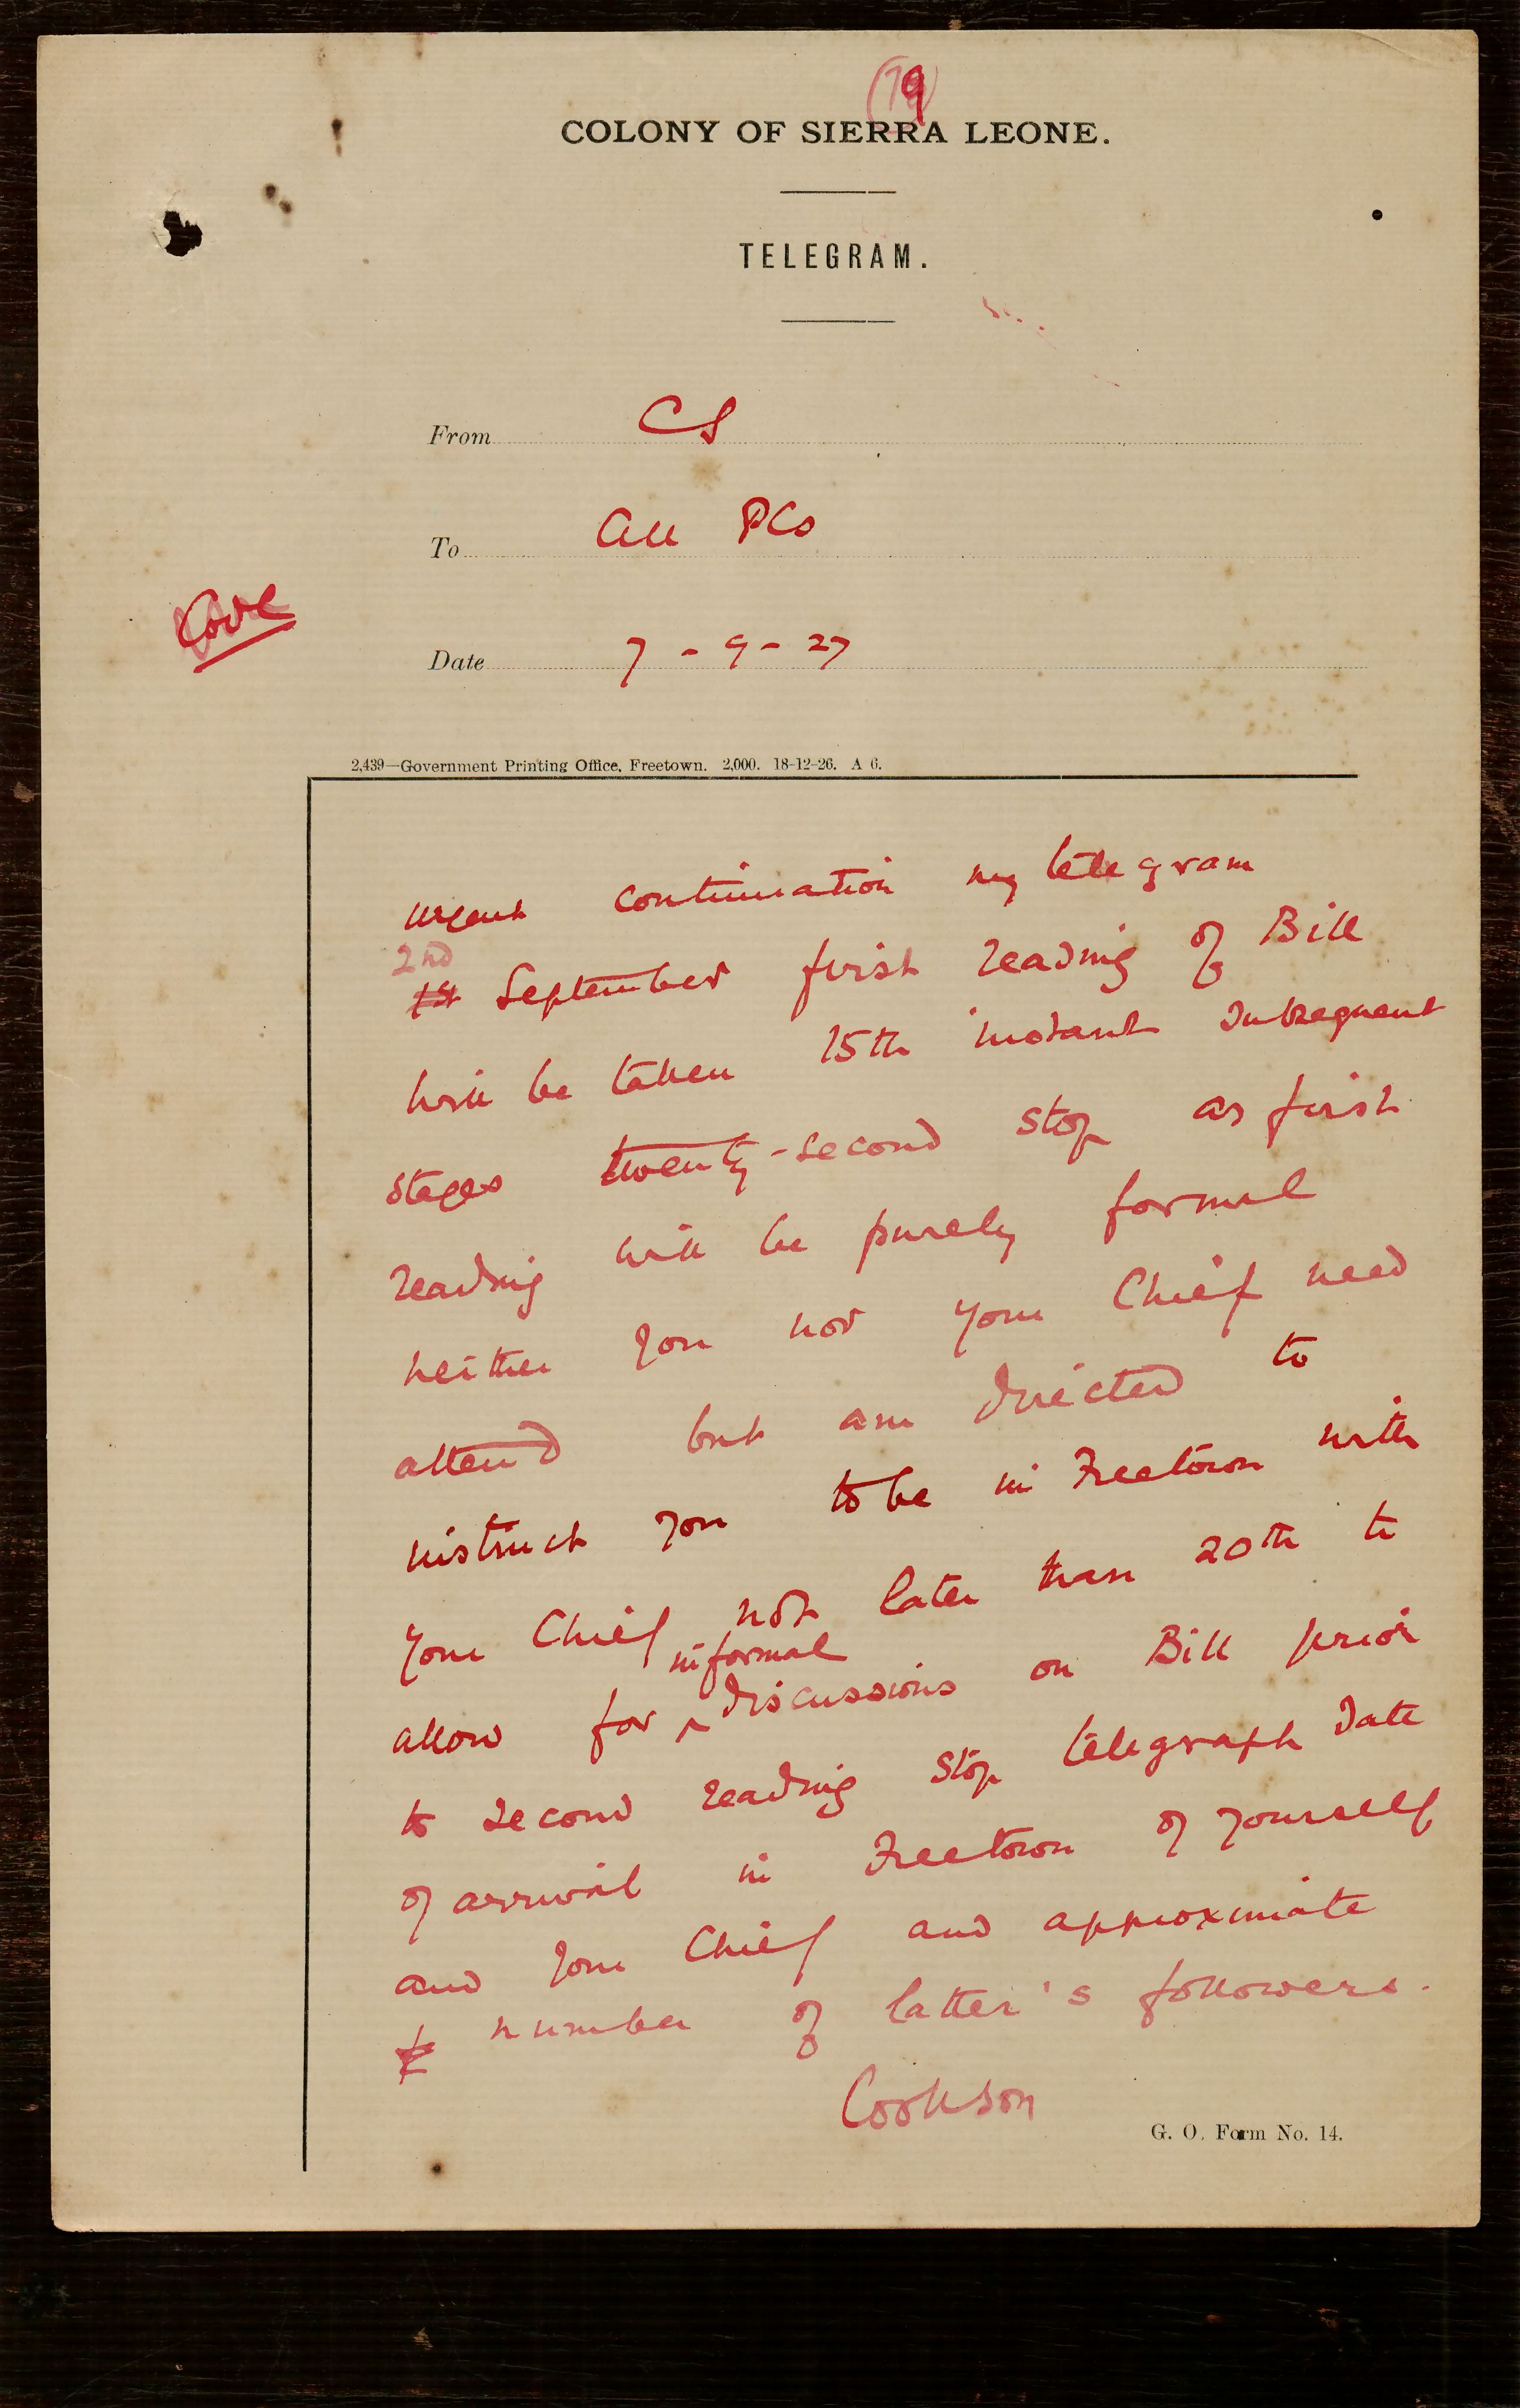 (19)
COLONY OF SIERRA LEONE.
TELEGRAM.
From CS
To All PCs
Code
Date 7-9-27
2,439—Government Printing Office, Freetown. 2,000. 18-12-26. A 6.
urgent continuation my telegram
2nd
1st September first reading of Bill
will be taken 15th instant subsequent
stages twenty-second stop as first
reading will be purely formal
neither you nor your Chief need
attend but am directed to
instruct you to be in Freetown with
your Chief not later than 20th to
informal
allow for ^ discussions on Bill prior
to second reading stop telegraph date
of arrival in Freetown of yourself
and your Chief and approximate
number of latter's followers.
Cookson
G. O. Form No. 14.